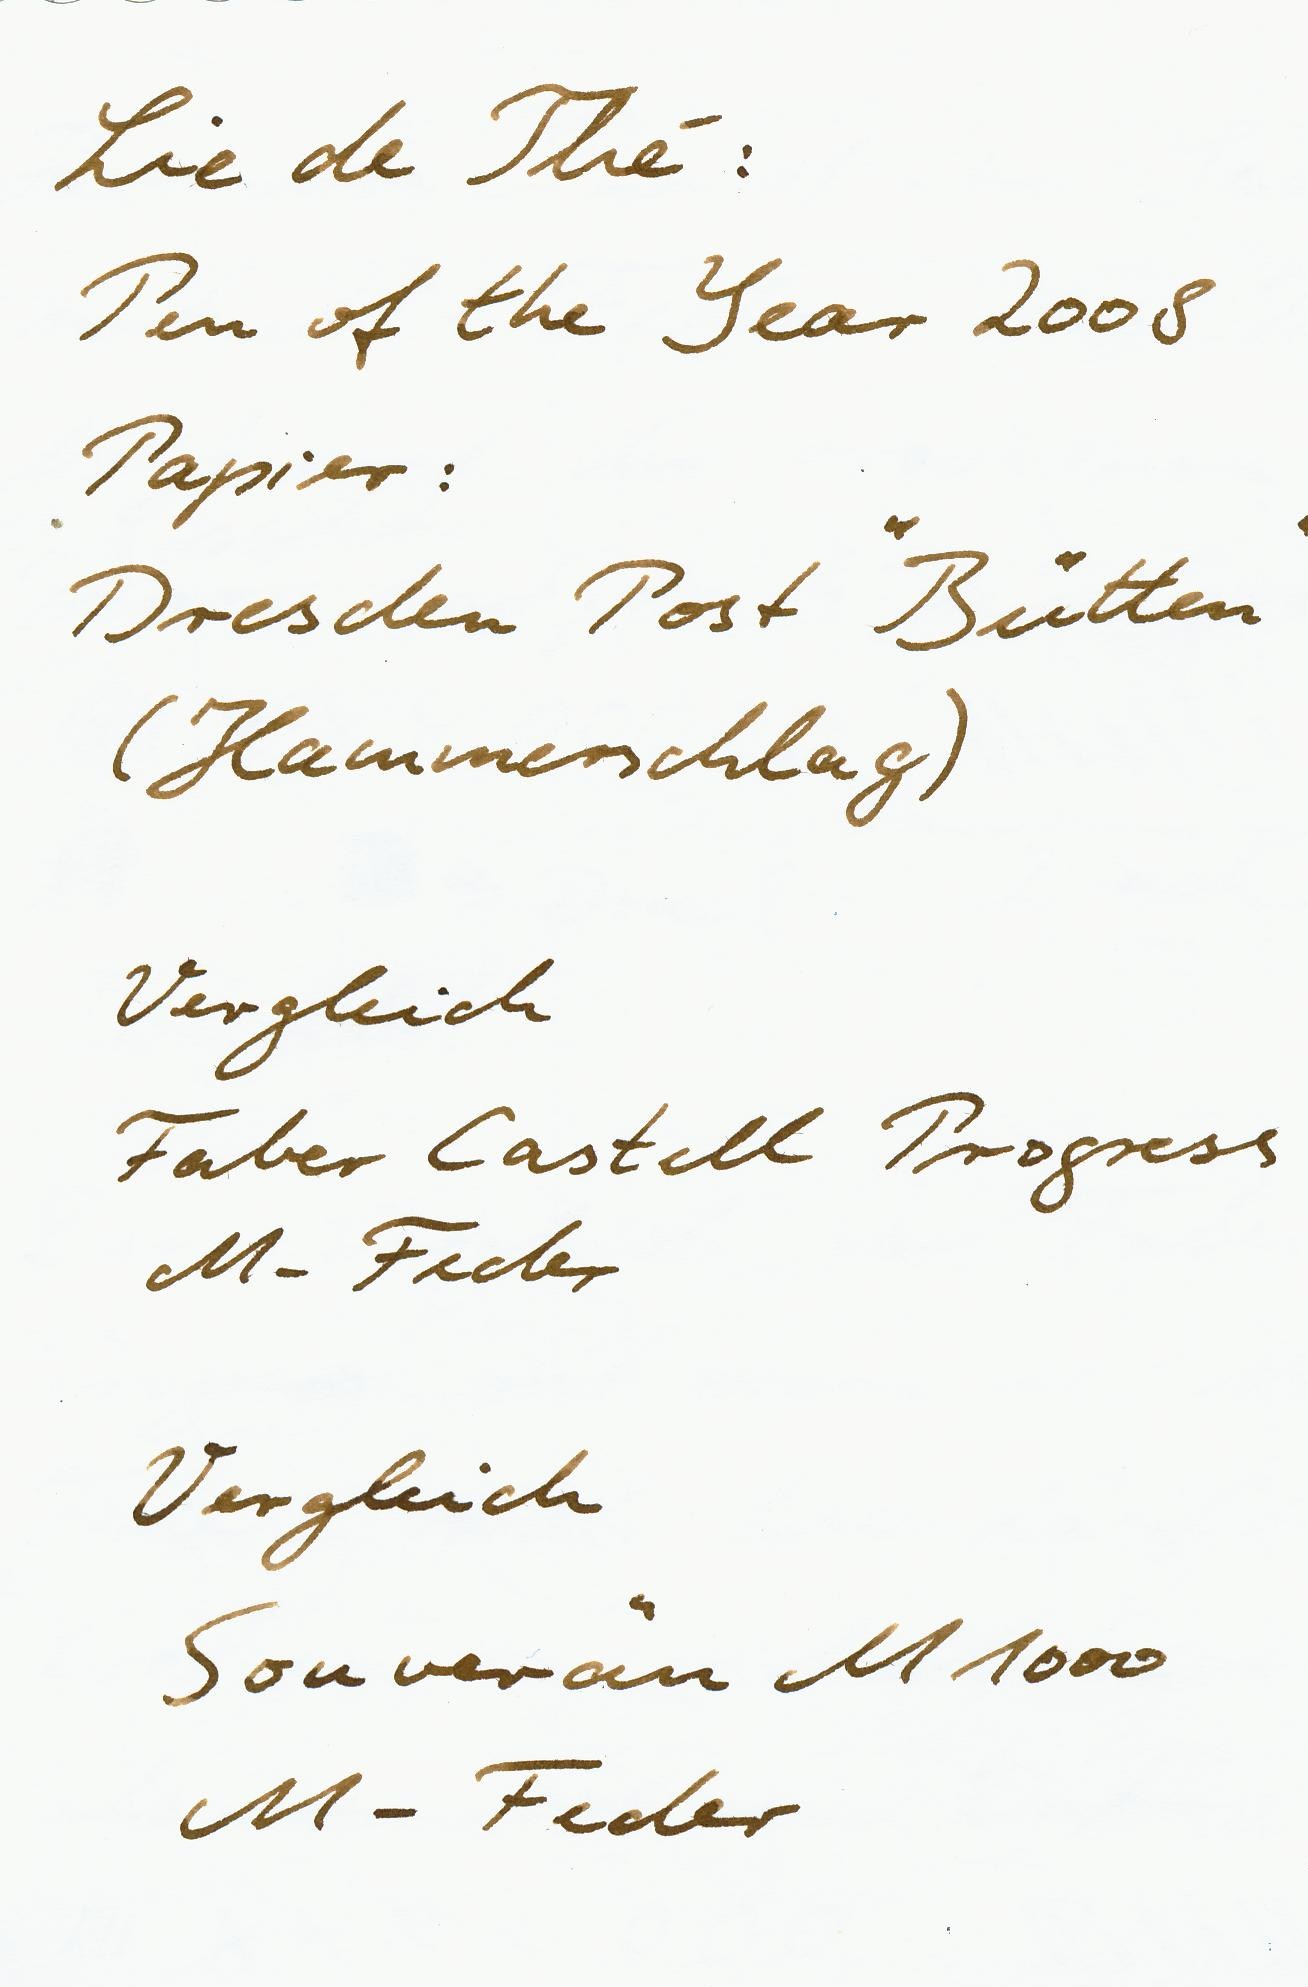 Lie de Thé:
Pen of the Year 2008
Papier:
Dresden Post "Bütten"
(Hammerschlag)
Vergleich
Faber Castell Progress
M- Feder
Vergleich
Souverän M 1000
M - Feder